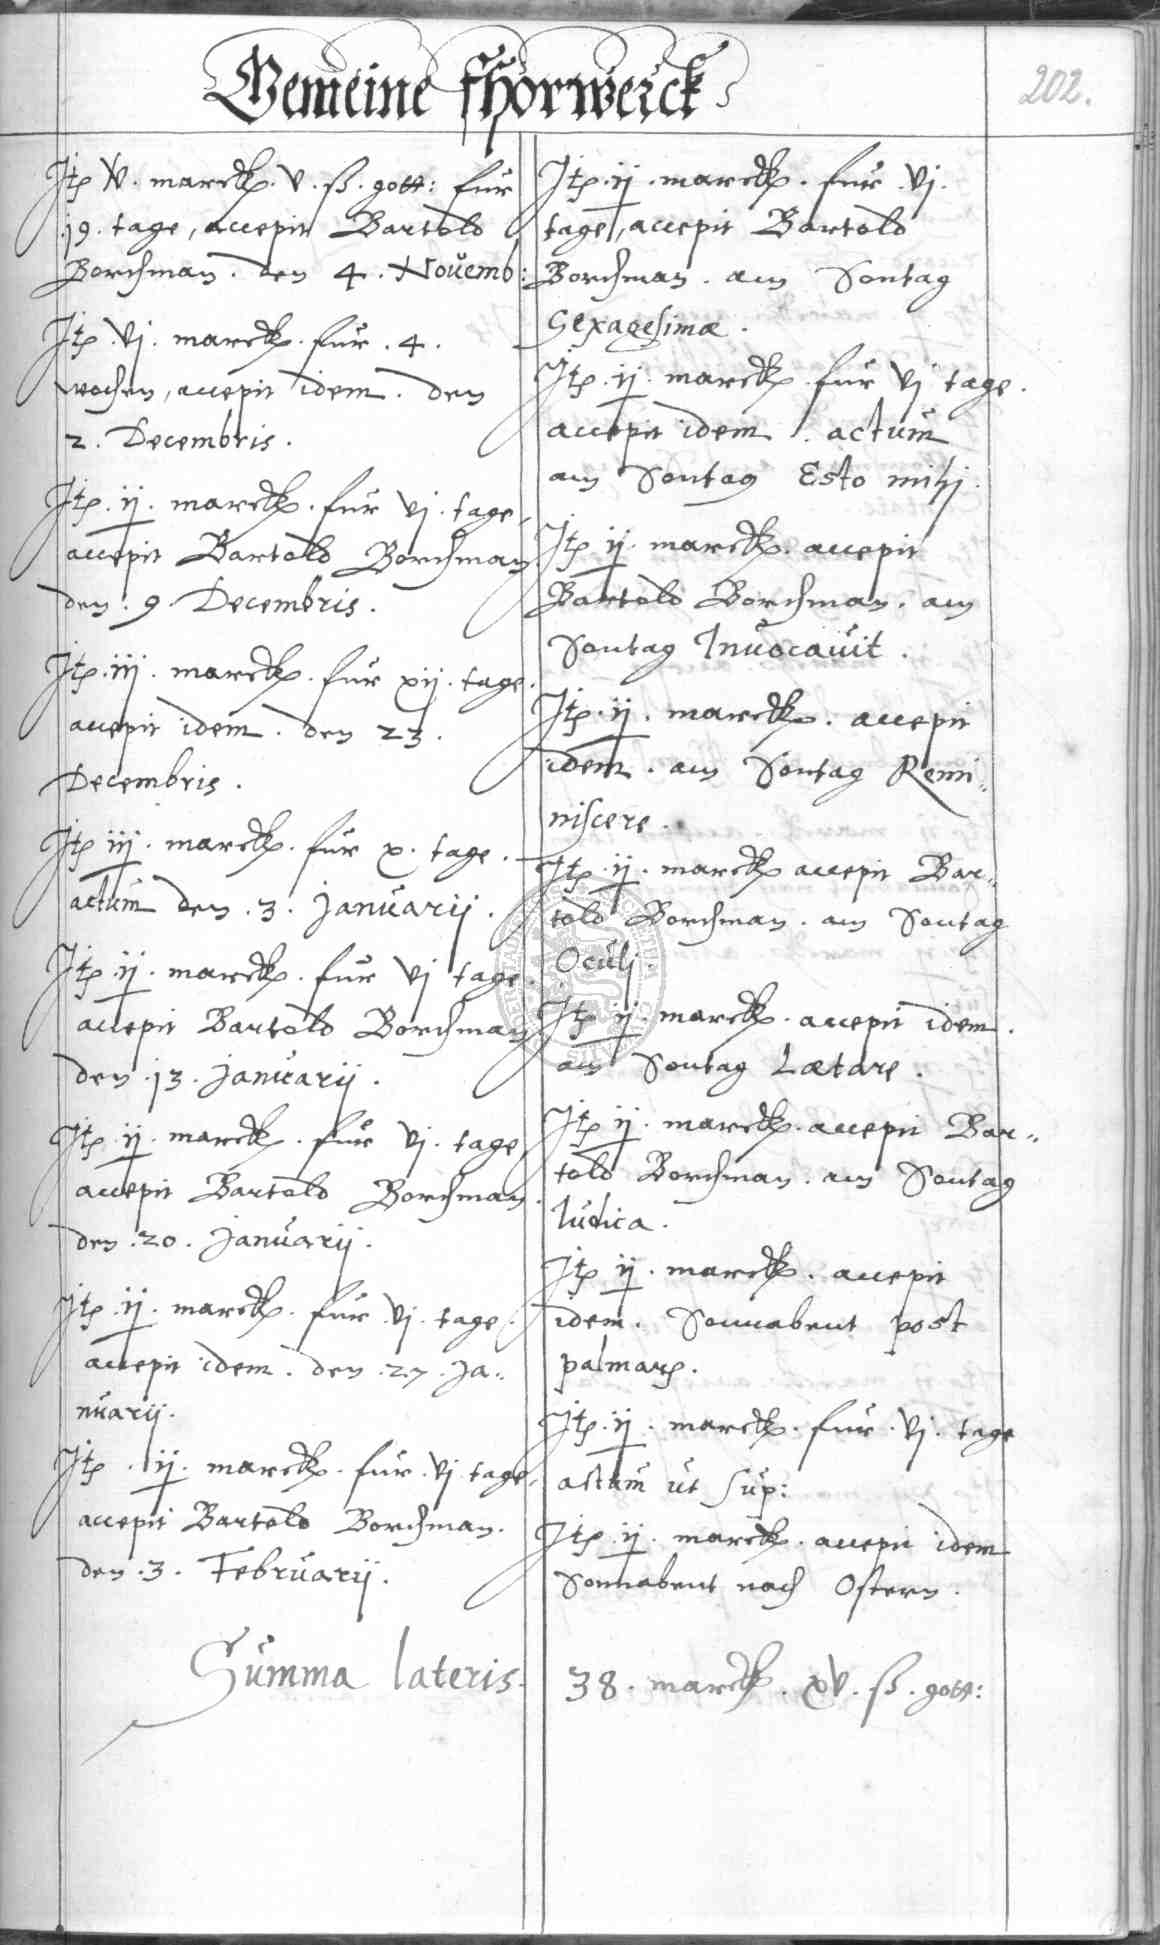 Gemeine fhörwerck
202.
Itp V. marck. v. ß. gott: für
19. tage, accepit Bartold
Borchman. den 4. Novemb:
Itp. Vj. marck. für. 4.
wochen, accepit idem. den
2. Decembris.
Itp. ij. marck. für vj. tage,
accepit Bartold Borchman
den. 9. Decembris.
Itp. iij. marck. für xij. tage.
accepit idem. den 23.
Decembris.
Itp iij. marck. für x. tage.
actum den. 3. Januarij.
Itp. ij. marck. für vj tage.
accepit Bartold Borchman
den. 13. Januarij.
Itp. ij. marck. für vj. tage
accepit Bartold Borchman.
den. 20. Januarij.
Itp. ij. marck. für vj. tage.
accepit idem. den. 27. Ja„
nuarij.
Itp. ij. marck. für. vj tage,
accepit Bartold Borchman.
den. 3. Februarij.
Itp. ij. marck. für. vj.
tage, accepit Bartold
Borchman. am Sontag
Sexagesimæ.
Itp. ij. marck. für vj tage.
accepit idem. actum
am Sontag Esto mihj.
Itp ij. marck. accepit
Bartold Borchman. am
Sontag Invocavit.
Itp. ij. marck. accepit
idem. am Sontag Remi„
niscere.
Itp. ij. marck accepit Bar„
told Borchman. am Sontag
Oculj.
Itp ij. marck. accepit idem.
am Sontag Lætare.
Itp ij. marck. accepit Bar„
told Borchman. am Sontag
Iudica.
Itp ij. marck. accepit
idem. Sonnabent post
palmarum.
Itp. ij. marck. für. vj. tage
actum ut sup:
Itp. ij. marck. accepit idem
Sonnabent nach Ostern.
Summa lateris. 38. marck. xv. ß. gott: